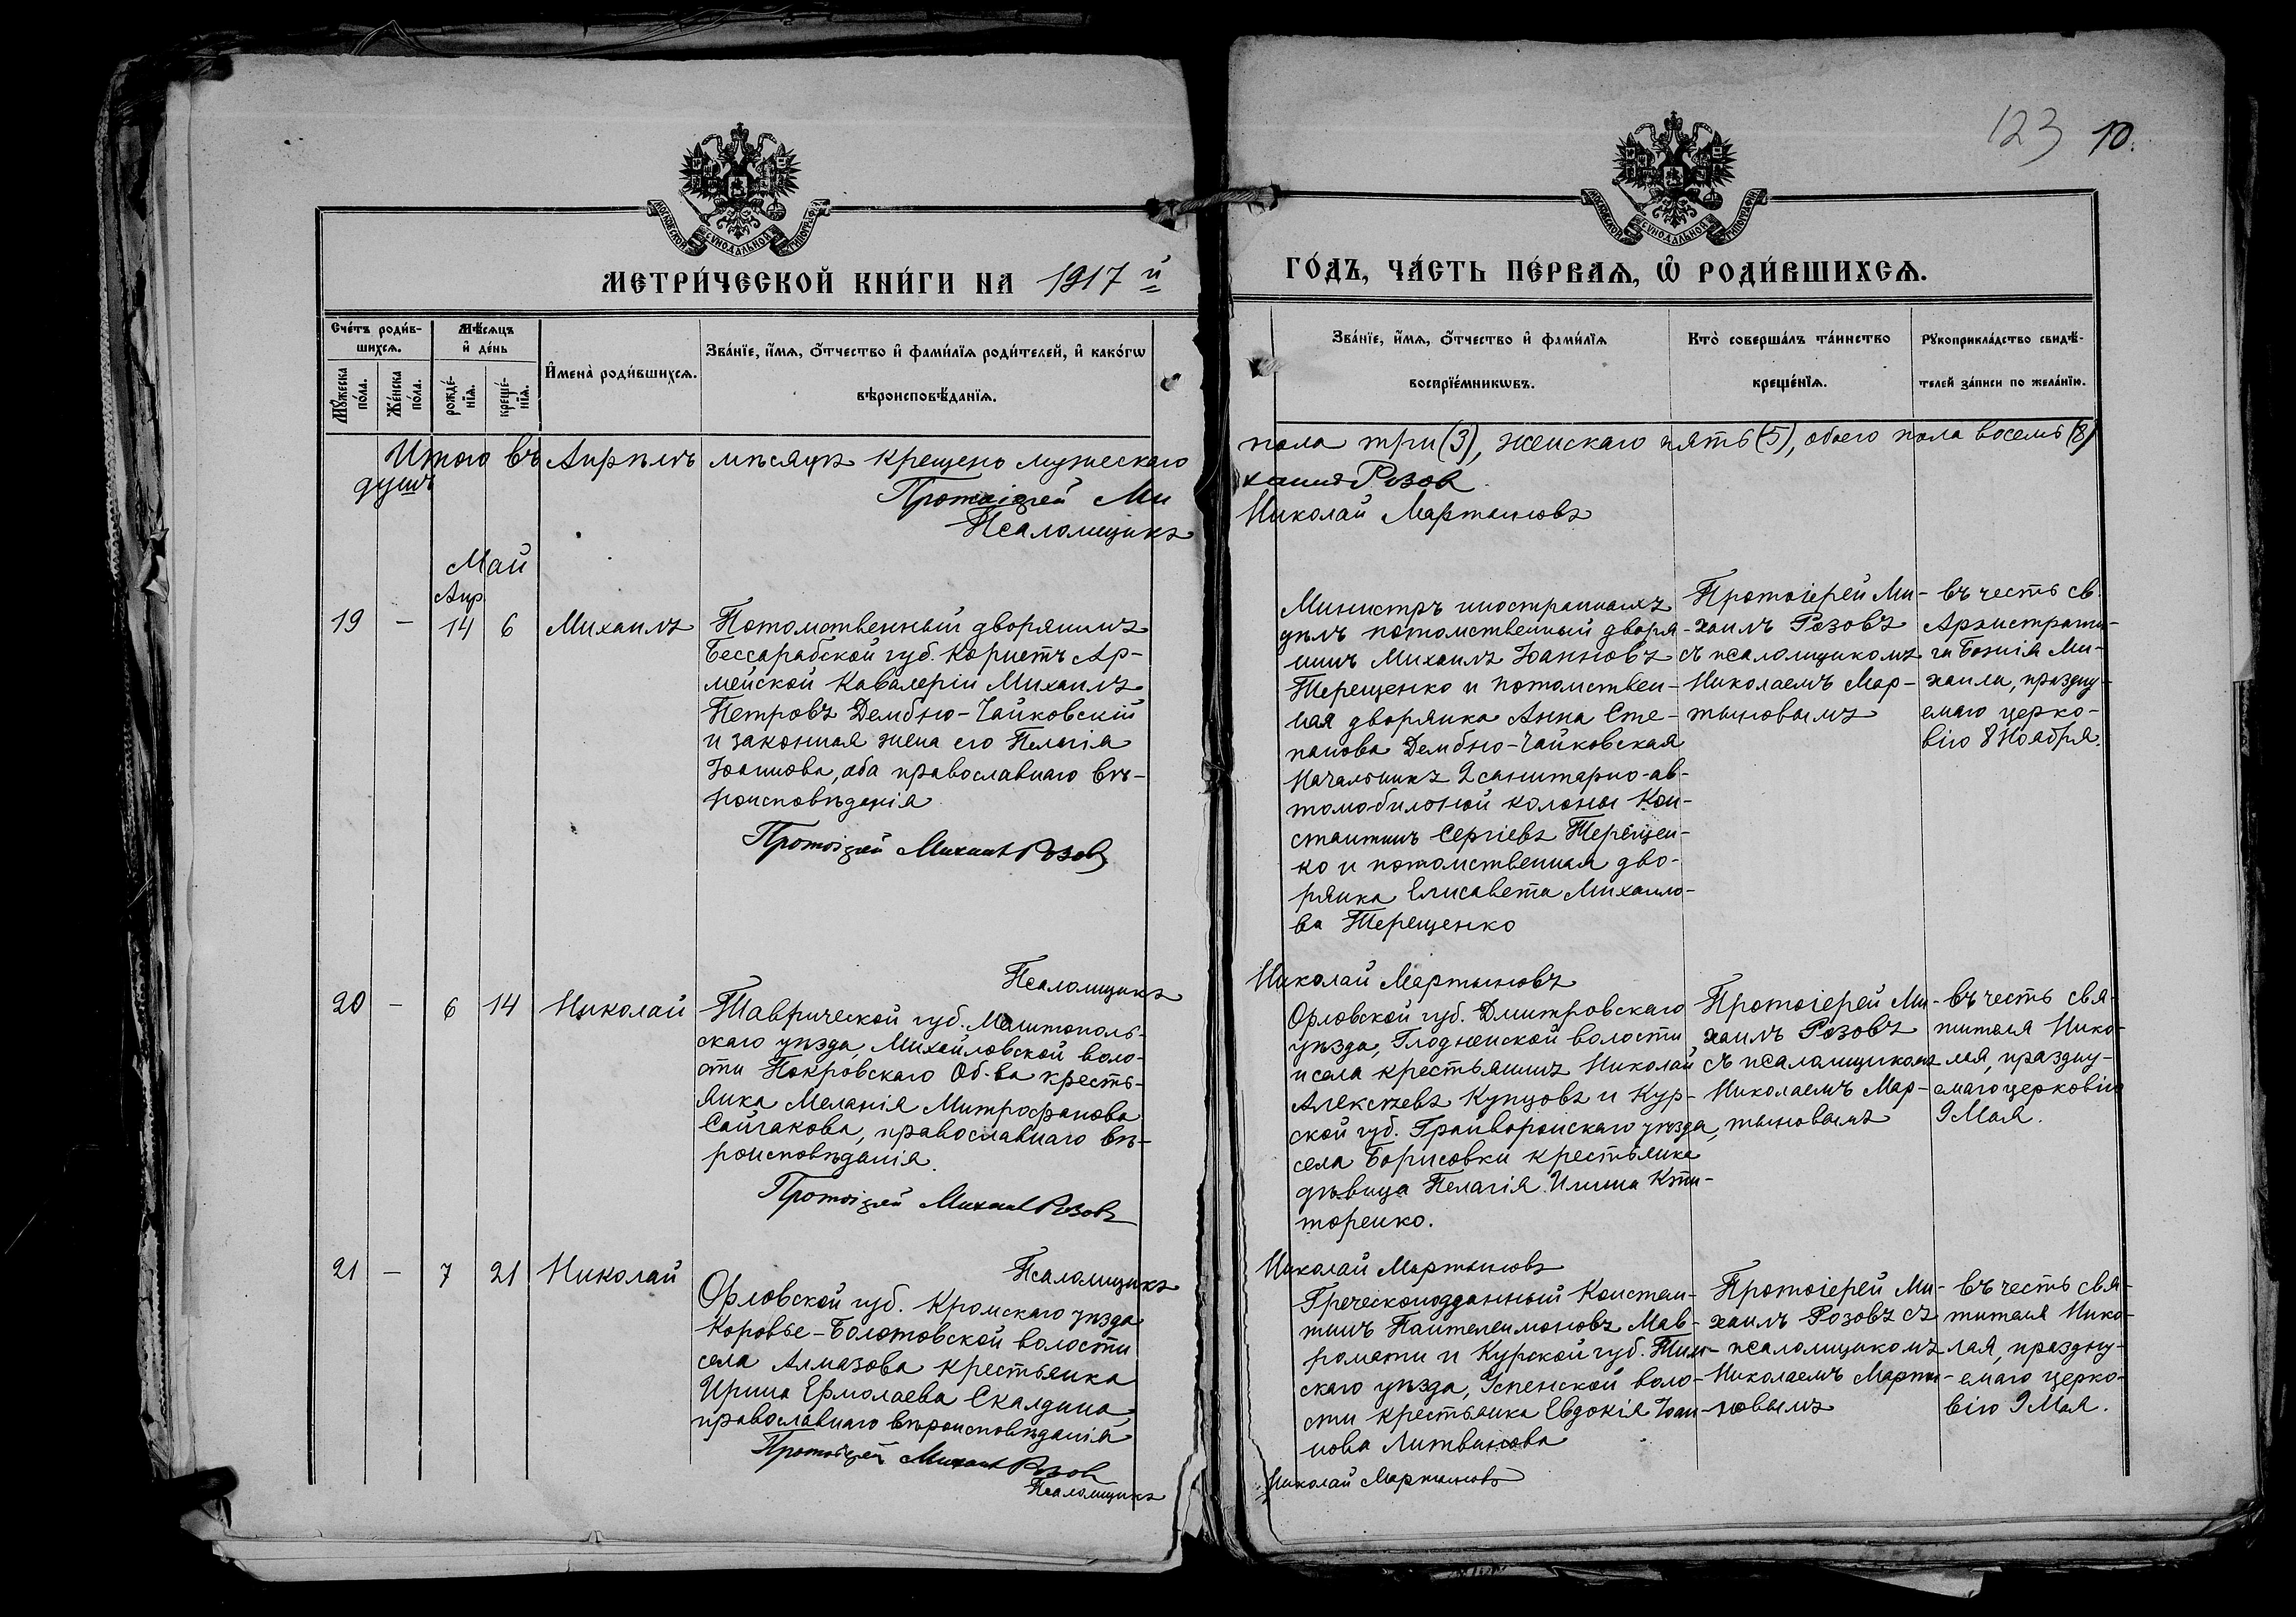 123 10.
МОСКОВСКОЙ СѴНОДАЛЬНОЙ ТИПОГРАФІИ
МОСКОВСКОЙ СѴНОДАЛЬНОЙ ТИПОГРАФІИ
МЕТРИ́ЧЕСКОЙ КНИ́ГИ НА 1917 й
ГО́ДЪ, ЧА́СТЬ ПЕ́РВАѦ, Ѽ РОДИ́ВШИХСѦ.
Сче́тъ роди́в-
шихсѧ.
Мѣ́сѧцъ
и҆ де́нь
Мꙋ́жеска по́ла.
Же́нска по́ла.
рожде́-
нїѧ.
креще́-
нїѧ.
И҆мена̀ роди́вшихсѧ.
Зва́нїе, и҆́мѧ, ѻ҆́тчество и҆ фами́лїѧ роди́телей, и҆ како́гѡ
вѣроисповѣ́данїѧ.
Зва́нїе, и҆́мѧ, ѻ҆́тчество и҆ фами́лїѧ
воспрїе́мникѡвъ.
Кто̀ соверша́лъ та́инство
креще́нїѧ.
Рꙋкоприкла́дство свидѣ́-
телей за́писи по жела́нїю.
Итого въ Апрѣлѣ мѣсяцѣ крещено мужескаго пола три (3), женскаго пять (5), обоего пола восемь (8)
душъ
Протоіерей Михаилъ Розов.
Псаломщикъ Николай Мартыновъ
Май
Апр.
19 – 14 6 Михаилъ
Потомственный дворянинъ
Бессарабской губ. Корнетъ Ар-
мейской Кавалеріи Михаилъ
Петровъ Дембно-Чайковскій
и законная жена его Пелагія
Іоаннова, оба православнаго вѣ-
роисповѣданія
Протоіерей Михаилъ Розовъ
Министръ иностранныхъ
дѣлъ потомственный дворя-
нинъ Михаилъ Іоанновъ
Терещенко и потомствен-
ная дворянка Анна Сте-
панова Дембно-Чайковская
Начальникъ 2 санитарно-ав-
томобильной колоны Кон-
стантинъ Сергіевъ Терещен-
ко и потомственная дво-
рянка Елисавета Михаило-
ва Терещенко
Протоіерей Ми-
хаилъ Розовъ
съ псаломщикомъ
Николаемъ Мар-
тыновымъ
въ честь св.
Архистрати-
га Божія Ми-
хаила, праздну-
емаго церко-
вію 8 Ноября.
Псаломщикъ Николай Мартыновъ
20 – 6 14 Николай
Таврической губ. Мелитополь-
скаго уѣзда, Михайловской воло-
сти Покровскаго Об-ва кресть-
янка Меланія Митрофанова
Сайгакова, православнаго вѣ-
роисповѣданія.
Протоіерей Михаилъ Розовъ
Орловской губ. Дмитровскаго
уѣзда, Глодневской волости,
и села крестьянинъ Николай
Алексѣевъ Купцовъ и Кур-
ской губ. Грайворонскаго уѣзда,
села Борисовки крестьянка
дѣвица Пелагія Ильина Кти-
торенко.
Протоіерей Ми-
хаилъ Розовъ
съ псаломщикомъ
Николаемъ Мар-
тыновымъ
въ честь свя-
тителя Нико-
лая, праздну-
емаго церковію
9 Мая.
Псаломщикъ Николай Мартыновъ
21 – 7 21 Николай
Орловской губ. Кромскаго уѣзда
Коровье-Болотовской волости
села Алмазова крестьянка
Ирина Ермолаева Скалдина,
православнаго вѣроисповѣданія
Протоіерей Михаилъ Розовъ
Греческоподданный Констан-
тинъ Пантелеимоновъ Мав-
ромати и Курской губ. Тим-
скаго уѣзда, Успенской воло-
сти крестьянка Евдокія Іоан-
нова Литвинова
Протоіерей Ми-
хаилъ Розовъ съ
псаломщикомъ
Николаемъ Марты-
новымъ
въ честь свя-
тителя Нико-
лая, праздну-
емаго церко-
вію 9 Мая.
Псаломщикъ Николай Мартыновъ